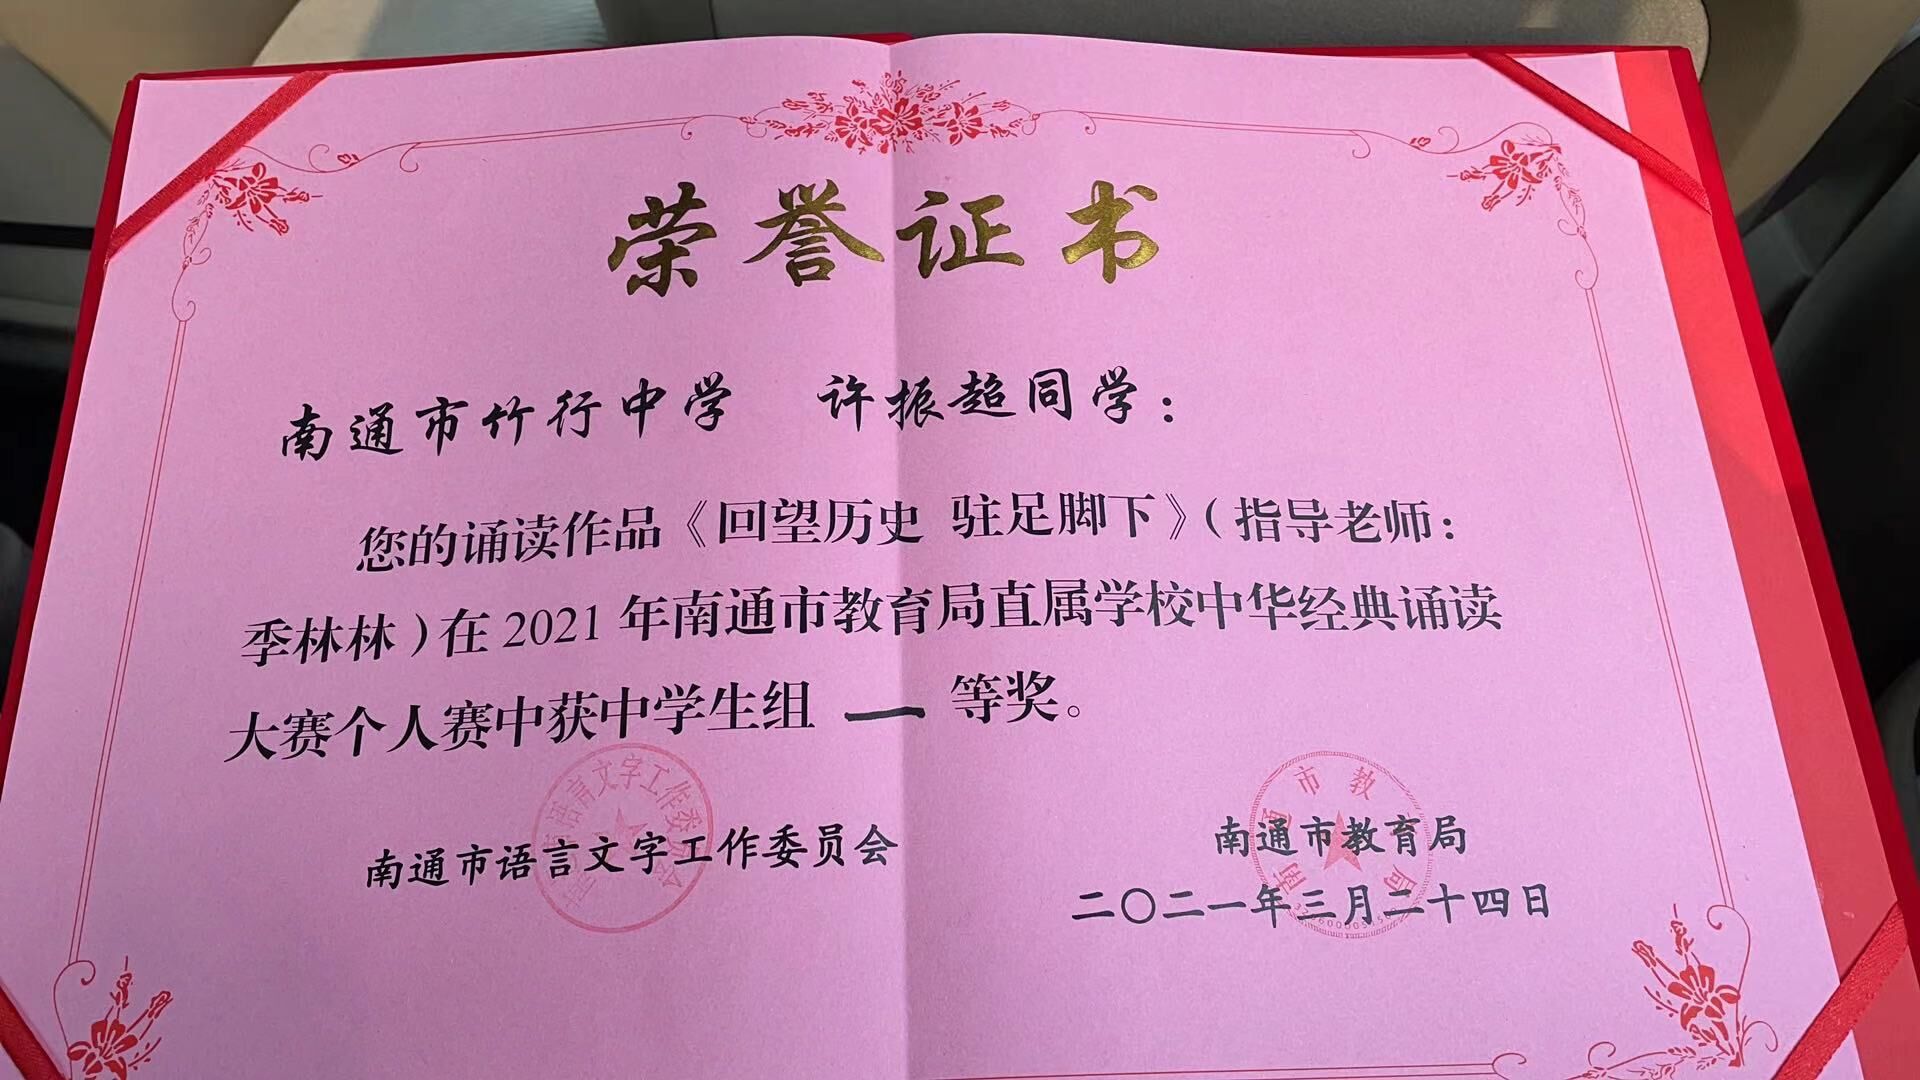 荣誉证书
南通市竹行中学 许振超同学：
您的诵读作品《回望历史 驻足脚下》（指导老师：
季林林）在 2021 年南通市教育局直属学校中华经典诵读
大赛个人赛中获中学生组 一 等奖。
南通市语言文字工作委员会
南通市教育局
二〇二一年三月二十四日